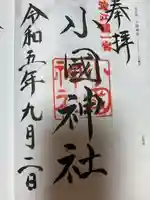 奉拝
遠江國一宮
小國神社
令和五年九月二日